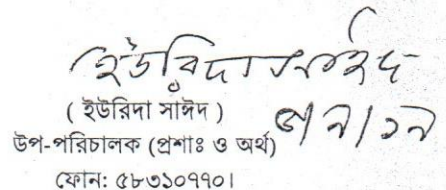 ইউরিদা সাঈদ
( ইউরিদা সাঈদ )
উপ-পরিচালক (প্রশাঃ ও অর্থ)
ফোন: ৫৮৩১০৭৭০।